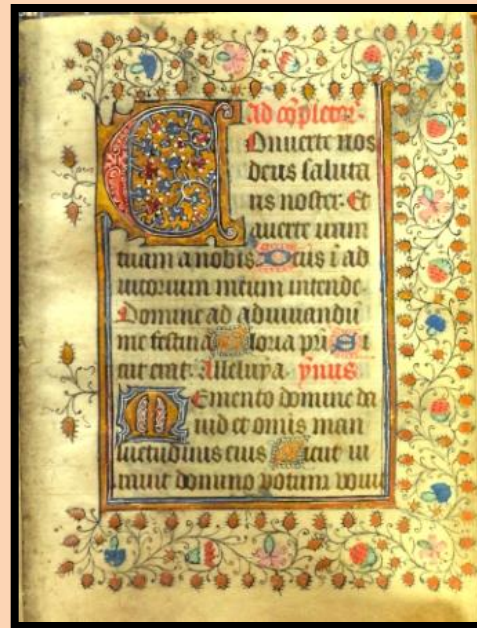 Ad cõpletor.
Conuerte nos
deus saluta
ris noster. Et
auerte iram
tuam a nobis. Deus ĩ ad
iutorium meum intende.
Domine ad adiuuandũ
me festina Gloria pr̃i Si
cut erat. Alleluya. ynus
Memento domine da
uid et omĩs man
suetudinis eius Sicut iu
rauit domino votum voui